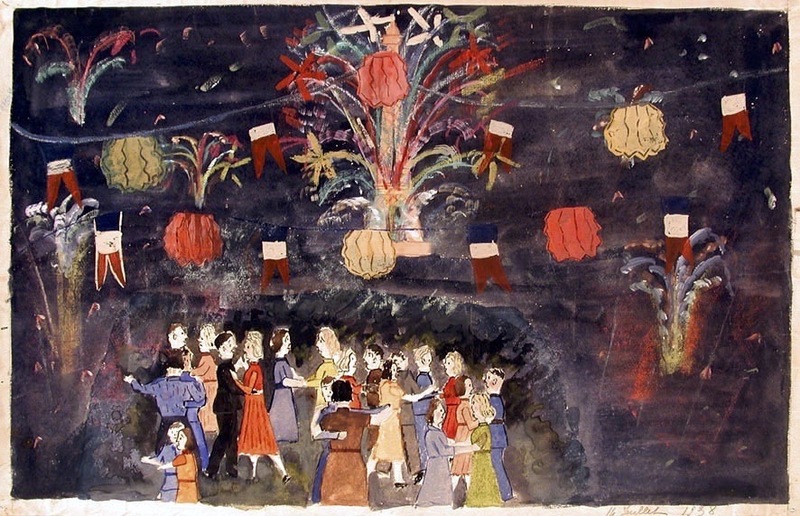 14 Juillet 1958